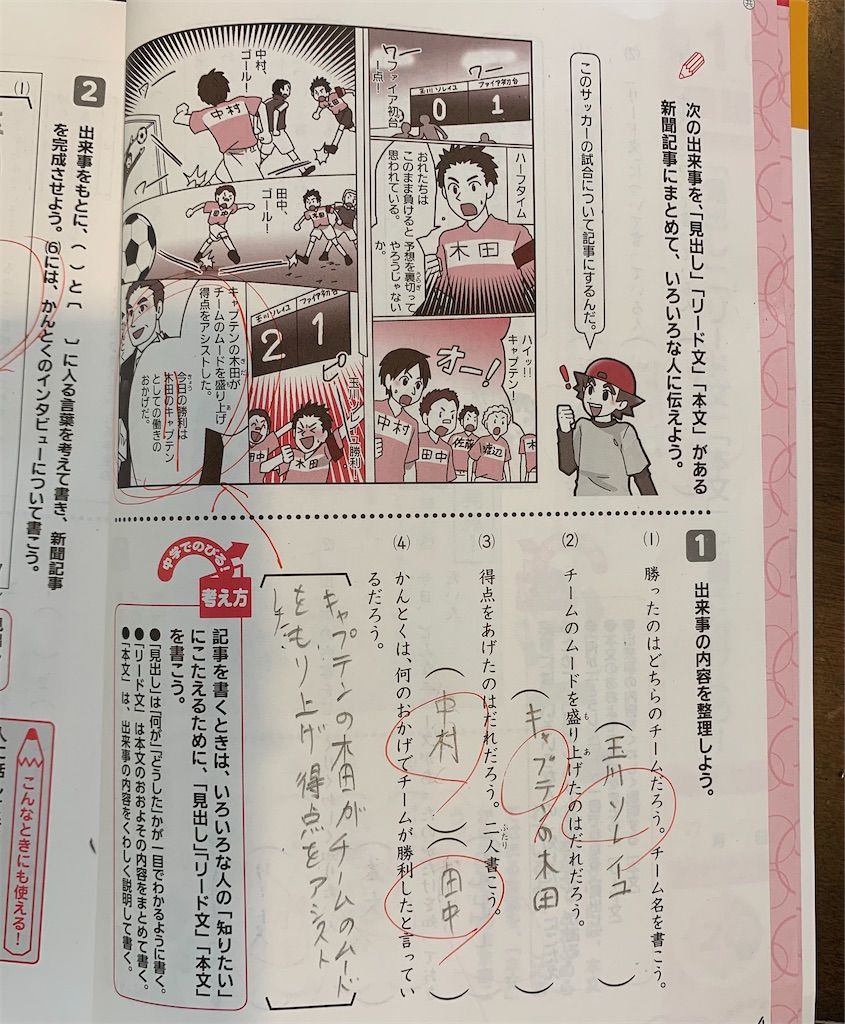 次の出来事を、「見出し」「リード文」「本文」がある
新聞記事にまとめて、いろいろな人に伝えよう。
このサッカーの試合について記事にするんだ。
ワー
ワー
ファイア初台
一点！
玉川ソレイユ
ファイア初台
0
1
ハーフタイム
おれたちは
このまま負けると
思われている。
予想を裏切って
うらぎ
やろうじゃない
か。
木田
ハイッ!!
キャプテン！
オー！
中村
田中
佐藤
渡辺
木
中村、
ゴール！
中村
田中、
ゴール！
田中
木田
玉川ソレイユ
ファイア初台
2
1
ピ
玉川ソレイユ勝利！
田中
木田
キャプテンの木田が
きだ
チームのムードを盛り上げ
も
あ
得点をアシストした。
今日の勝利は
きょう
木田のキャプテン
としての働きの
おかげだ。
1
出来事の内容を整理しよう。
(1) 勝ったのはどちらのチームだろう。チーム名を書こう。
（玉川ソレイユ）
(2) チームのムードを盛り上げたのはだれだろう。
も
あ
（キャプテンの木田）
(3) 得点をあげたのはだれだろう。二人書こう。
ふたり
（中村）（田中）
(4) かんとくは、何のおかげでチームが勝利したと言ってい
るだろう。
キャプテンの木田がチームのムード
をもり上げ得点をアシスト
した。
中学でのびる！
考え方
記事を書くときは、いろいろな人の「知りたい」
にこたえるために、「見出し」「リード文」「本文」
を書こう。
●「見出し」は「何が」「どうした」かが一目でわかるように書く。
●「リード文」は本文のおおよその内容をまとめて書く。
●「本文」は、出来事の内容をくわしく説明して書く。
2
出来事をもとに、（ ）と〔 〕に入る言葉を考えて書き、新聞記事
を完成させよう。⑥には、かんとくのインタビューについて書こう。
(1)
こんなときにも使える！